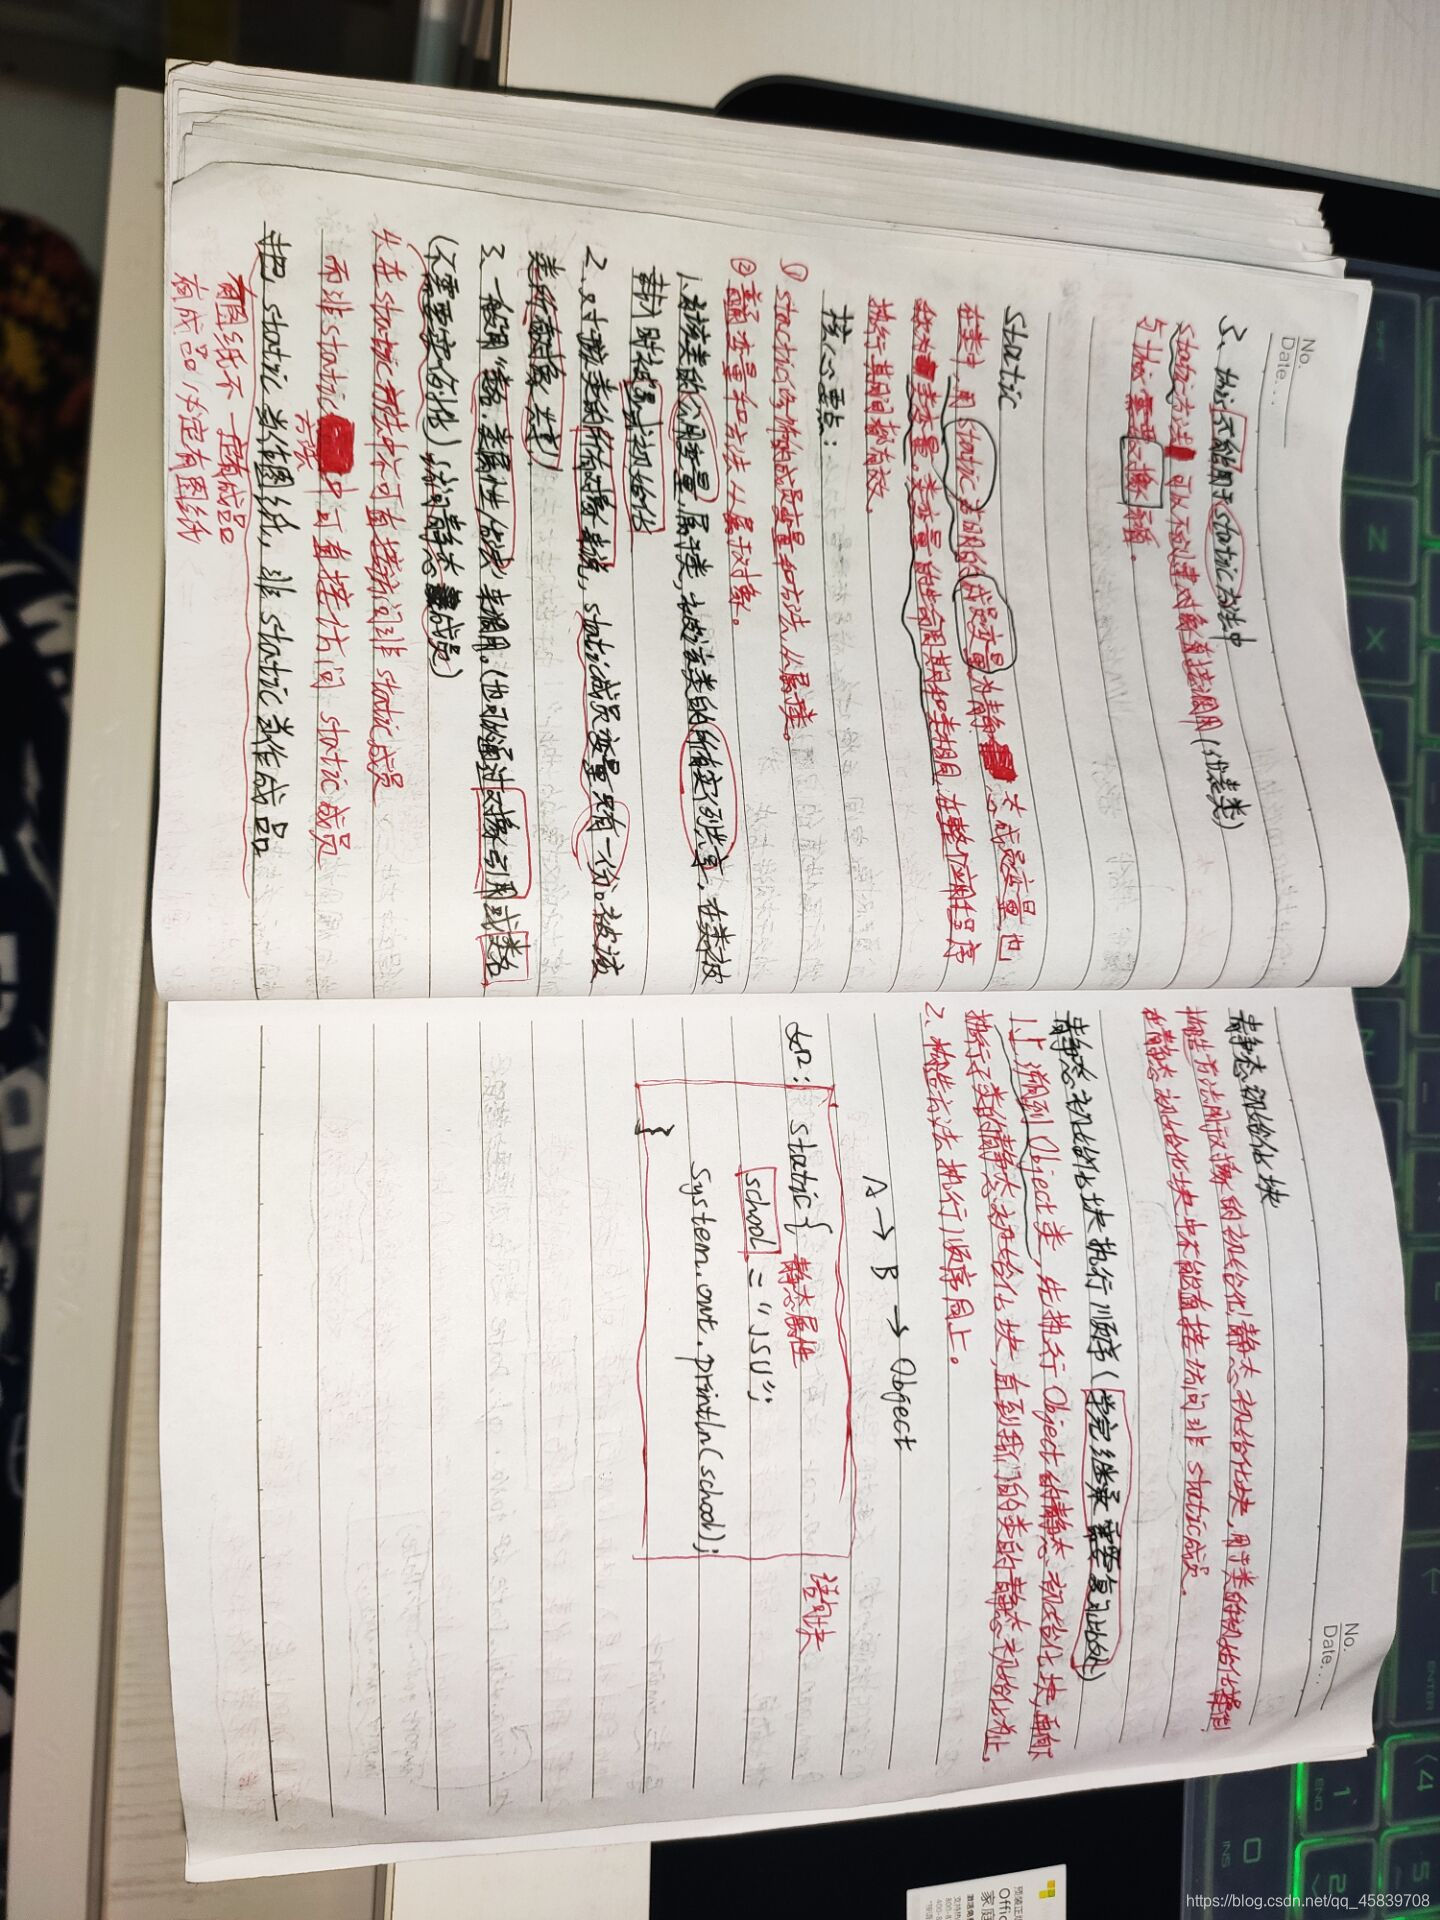 No.
Date...
3、this不能用于static方法中
static方法 可以不创建对象直接调用(代表类)
与this需要对象矛盾。
static
在类中,用static声明的成员变量为静态成员变量,也
称为类变量。类变量的生命周期和类相同,在整个应用程序
执行期间都有效。
核心要点:
① static修饰的成员变量和方法,从属类。
② 普通变量和方法从属于对象。
1.为该类的公用变量,属于类,被该类的所有实例共享,在类被
载入时被显式初始化
2、对于该类的所有对象来说,static成员变量只有一份。被该
类所有对象共享
3、一般用“类名.类属性/方法”来调用。(也可以通过对象引用或类名
(不需要实例化)访问静态成员)
4.在static方法中不可直接访问非static成员
而非static方法中可直接访问static成员
把 static 当作图纸,非static 当作成品
有图纸不一定有成品
有成品必定有图纸
No.
Date...
静态初始化块
构造方法用于对象的初始化!静态初始化块,用于类的初始化操作!
在静态初始化块中不能直接访问非static成员。
静态初始化块执行顺序(学完继承需要复习此处)
1.上溯到Object类,先执行Object的静态初始化块,再向下
执行子类的静态初始化块,直到我们的类的静态初始化块为止。
2、构造方法执行顺序同上。
A → B → Object
如: static{ 语句块
静态属性
school = "JSU";
System.out.println(school);
}
SHIFT
Z
X
ENTER
1
END
0
INS
2
4
5
https://blog.csdn.net/qq_45839708